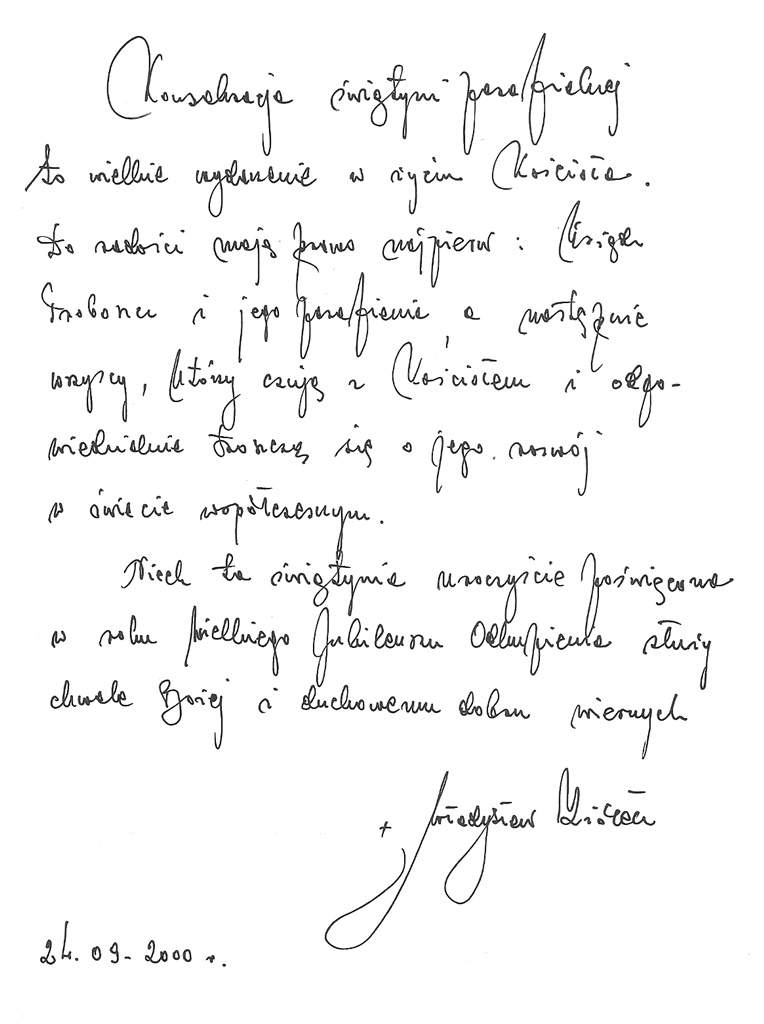 Konsekracja świątyni parafialnej
to wielkie wydarzenie w życiu Kościoła.
Do radości mają prawo najpierw: Ksiądz
Proboszcz i jego parafianie a następnie
wszyscy, którzy czują z Kościołem i odpo-
wiedzialnie troszczą się o jego rozwój
w świecie współczesnym.
Niech ta świątynia uroczyście poświęcona
w roku Wielkiego Jubileuszu Odkupienia służy
chwale Bożej i duchowemu dobru wiernych
+ Władysław Ziółek
24.09-2000 r.